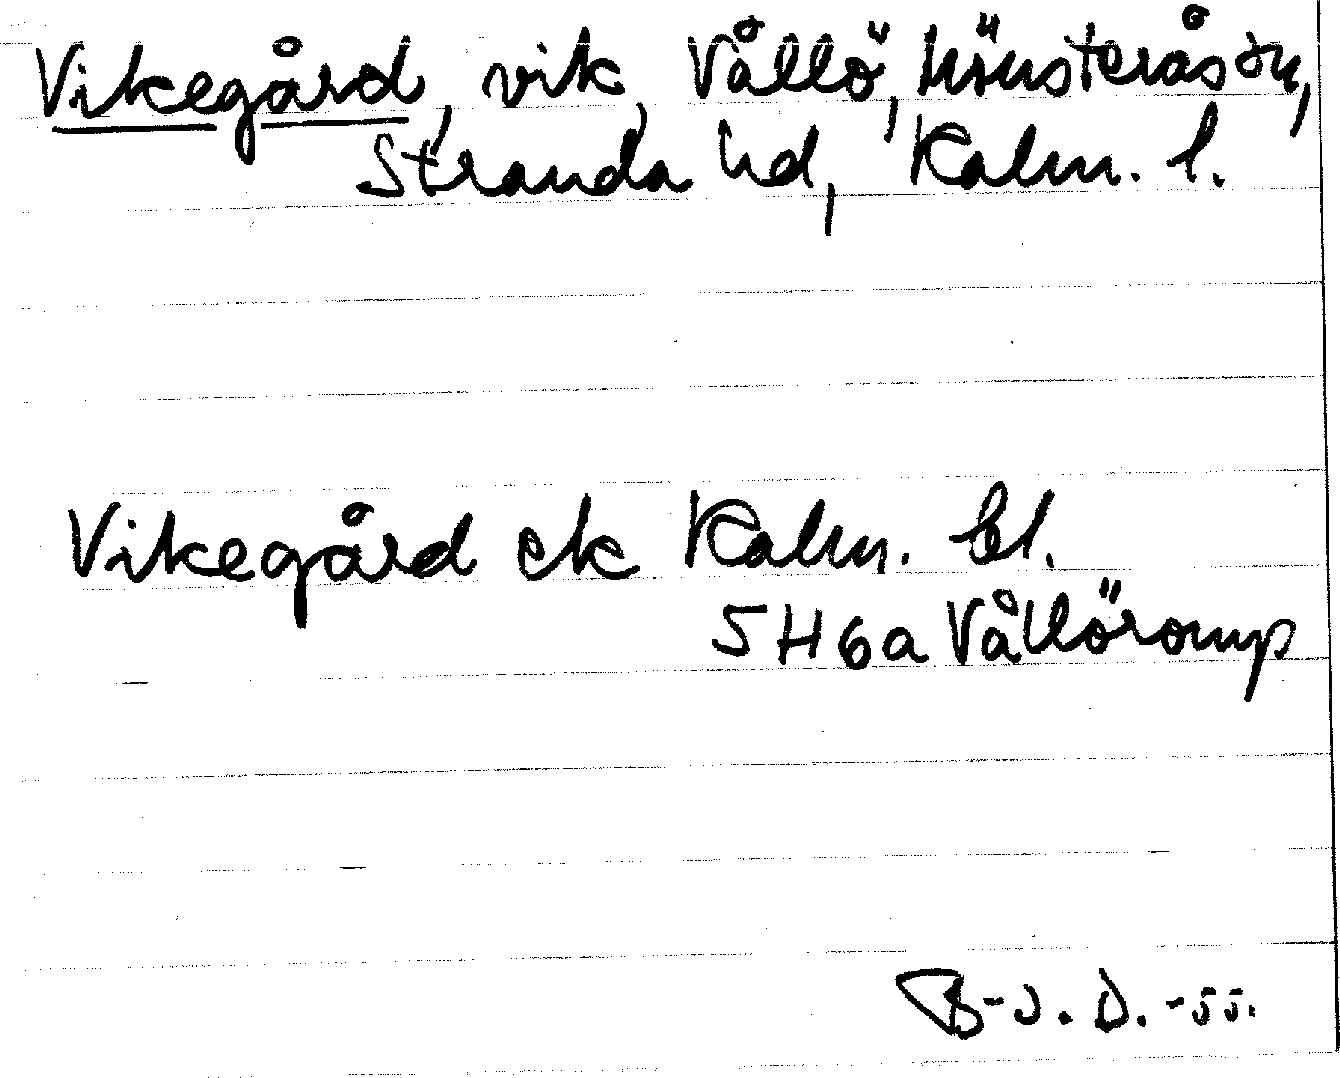 Vikegård, vik, Vållö, Mönsterås sn,
Stranda hd, Kalm. l.
Vikegård ek Kalm. bl.
5H6a Vållöromp
B-J. D. -55.